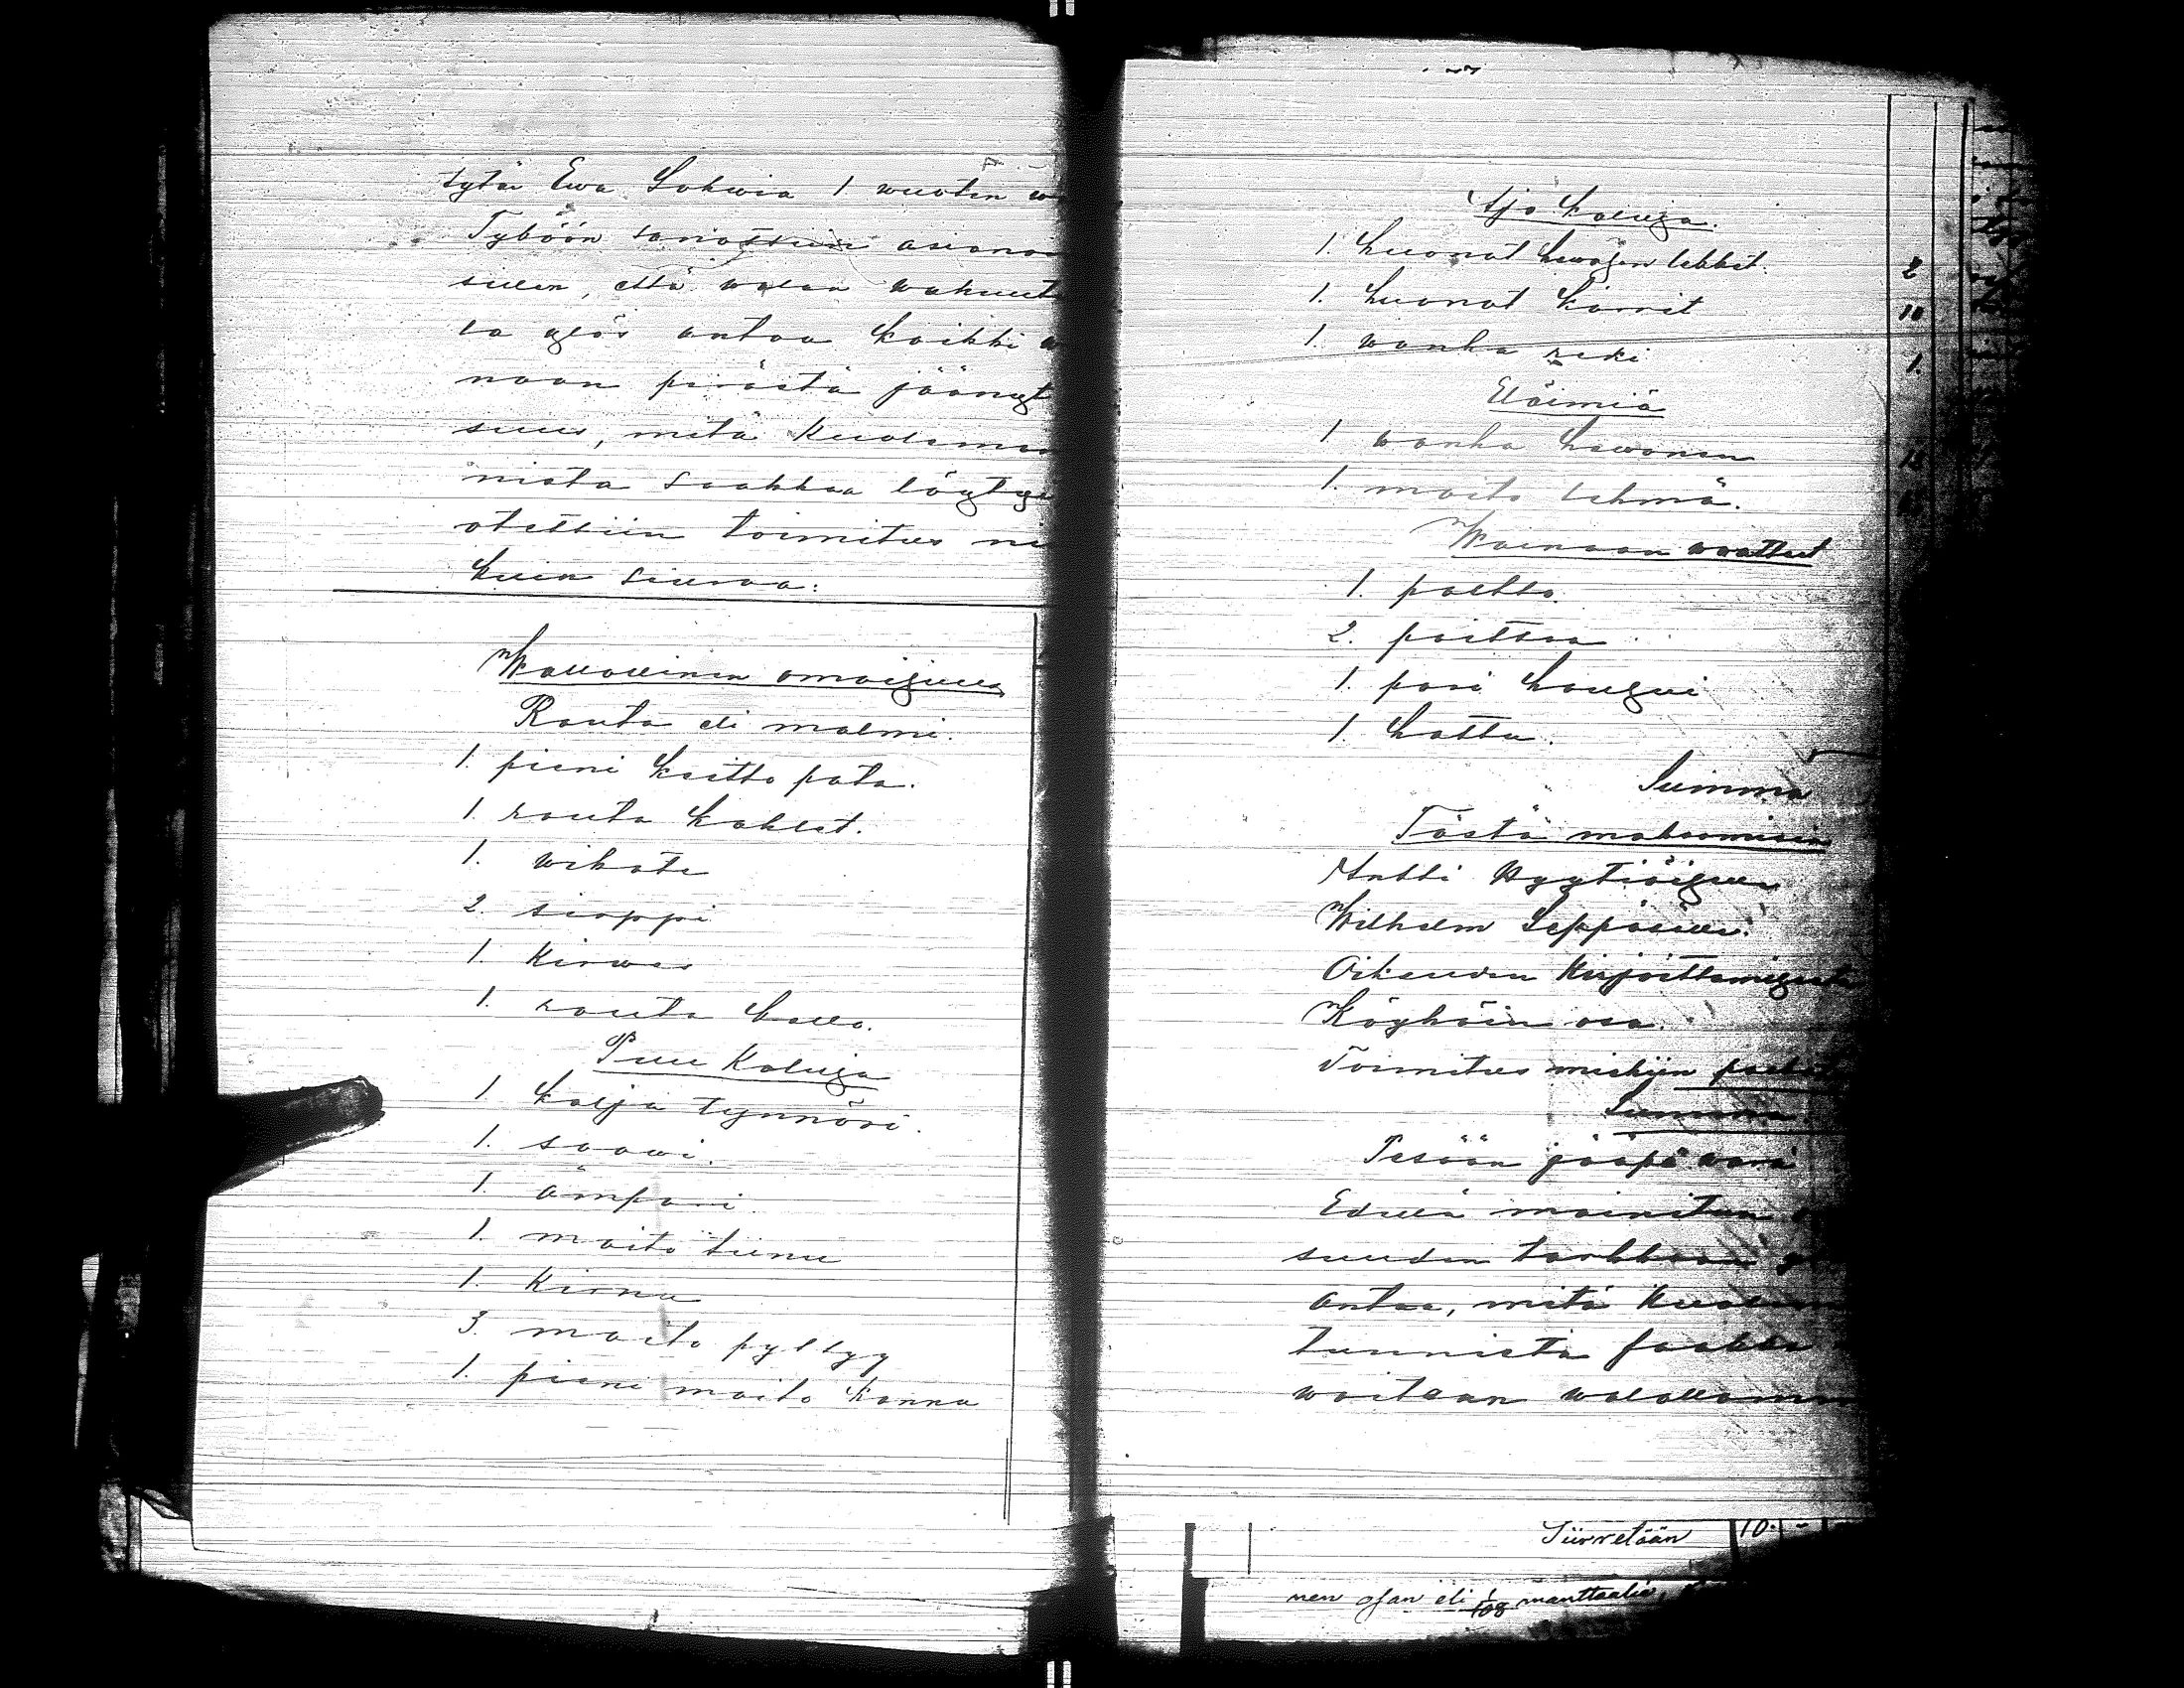 tytär Ewa Sohwia 1 wuoden w
Työhön sanottiin asiano
sillen, että walan wakuut
la ylös antaa kaikki w
naan perästä jäänyt
suus, mitä kuoleman
nista saakkaa löytye
otettiin toimitus ni
kuin seuraa:
Wallallinen omaisuus
Rauta eli malmi.
1. pieni keitto pata.
1. rauta kahlet.
1. wikate
2. sirppi
1. Kirwes
1. rauta
Puu Kaluja
1 kalja tynnöri.
1. saawi.
1. ämpäri.
1. maito tiinu
1. Kirnu
3. maito pyttyy
1. pieni maito kannu
Ajo kaluja.
1. huonot hewosen lekket. 2
1. huonot kärrit 10
1. wanha reki 1.
Eläimiä
1 wanha hewonen
1. maito lehmä.
Wainaan waatteet
1. paltto.
2. paittaa
1. pari housui
1. hattu.
Summa
Tästä maksamisia
Antti Hyytiäisellen
Wilhelm Seppäselle.
Oikeuden Kirjoittamisesta
Köyhäin osa.
Toimitus miehijen palk
Summa
Pesään jääpä wara
Edellä mainitun o
suuden tarkkaan
antaa, mitä kuolem
tunnista saakka
woitaan walallamm
Siirretään 10. -
nen osan eli 1/108 manttaalia,